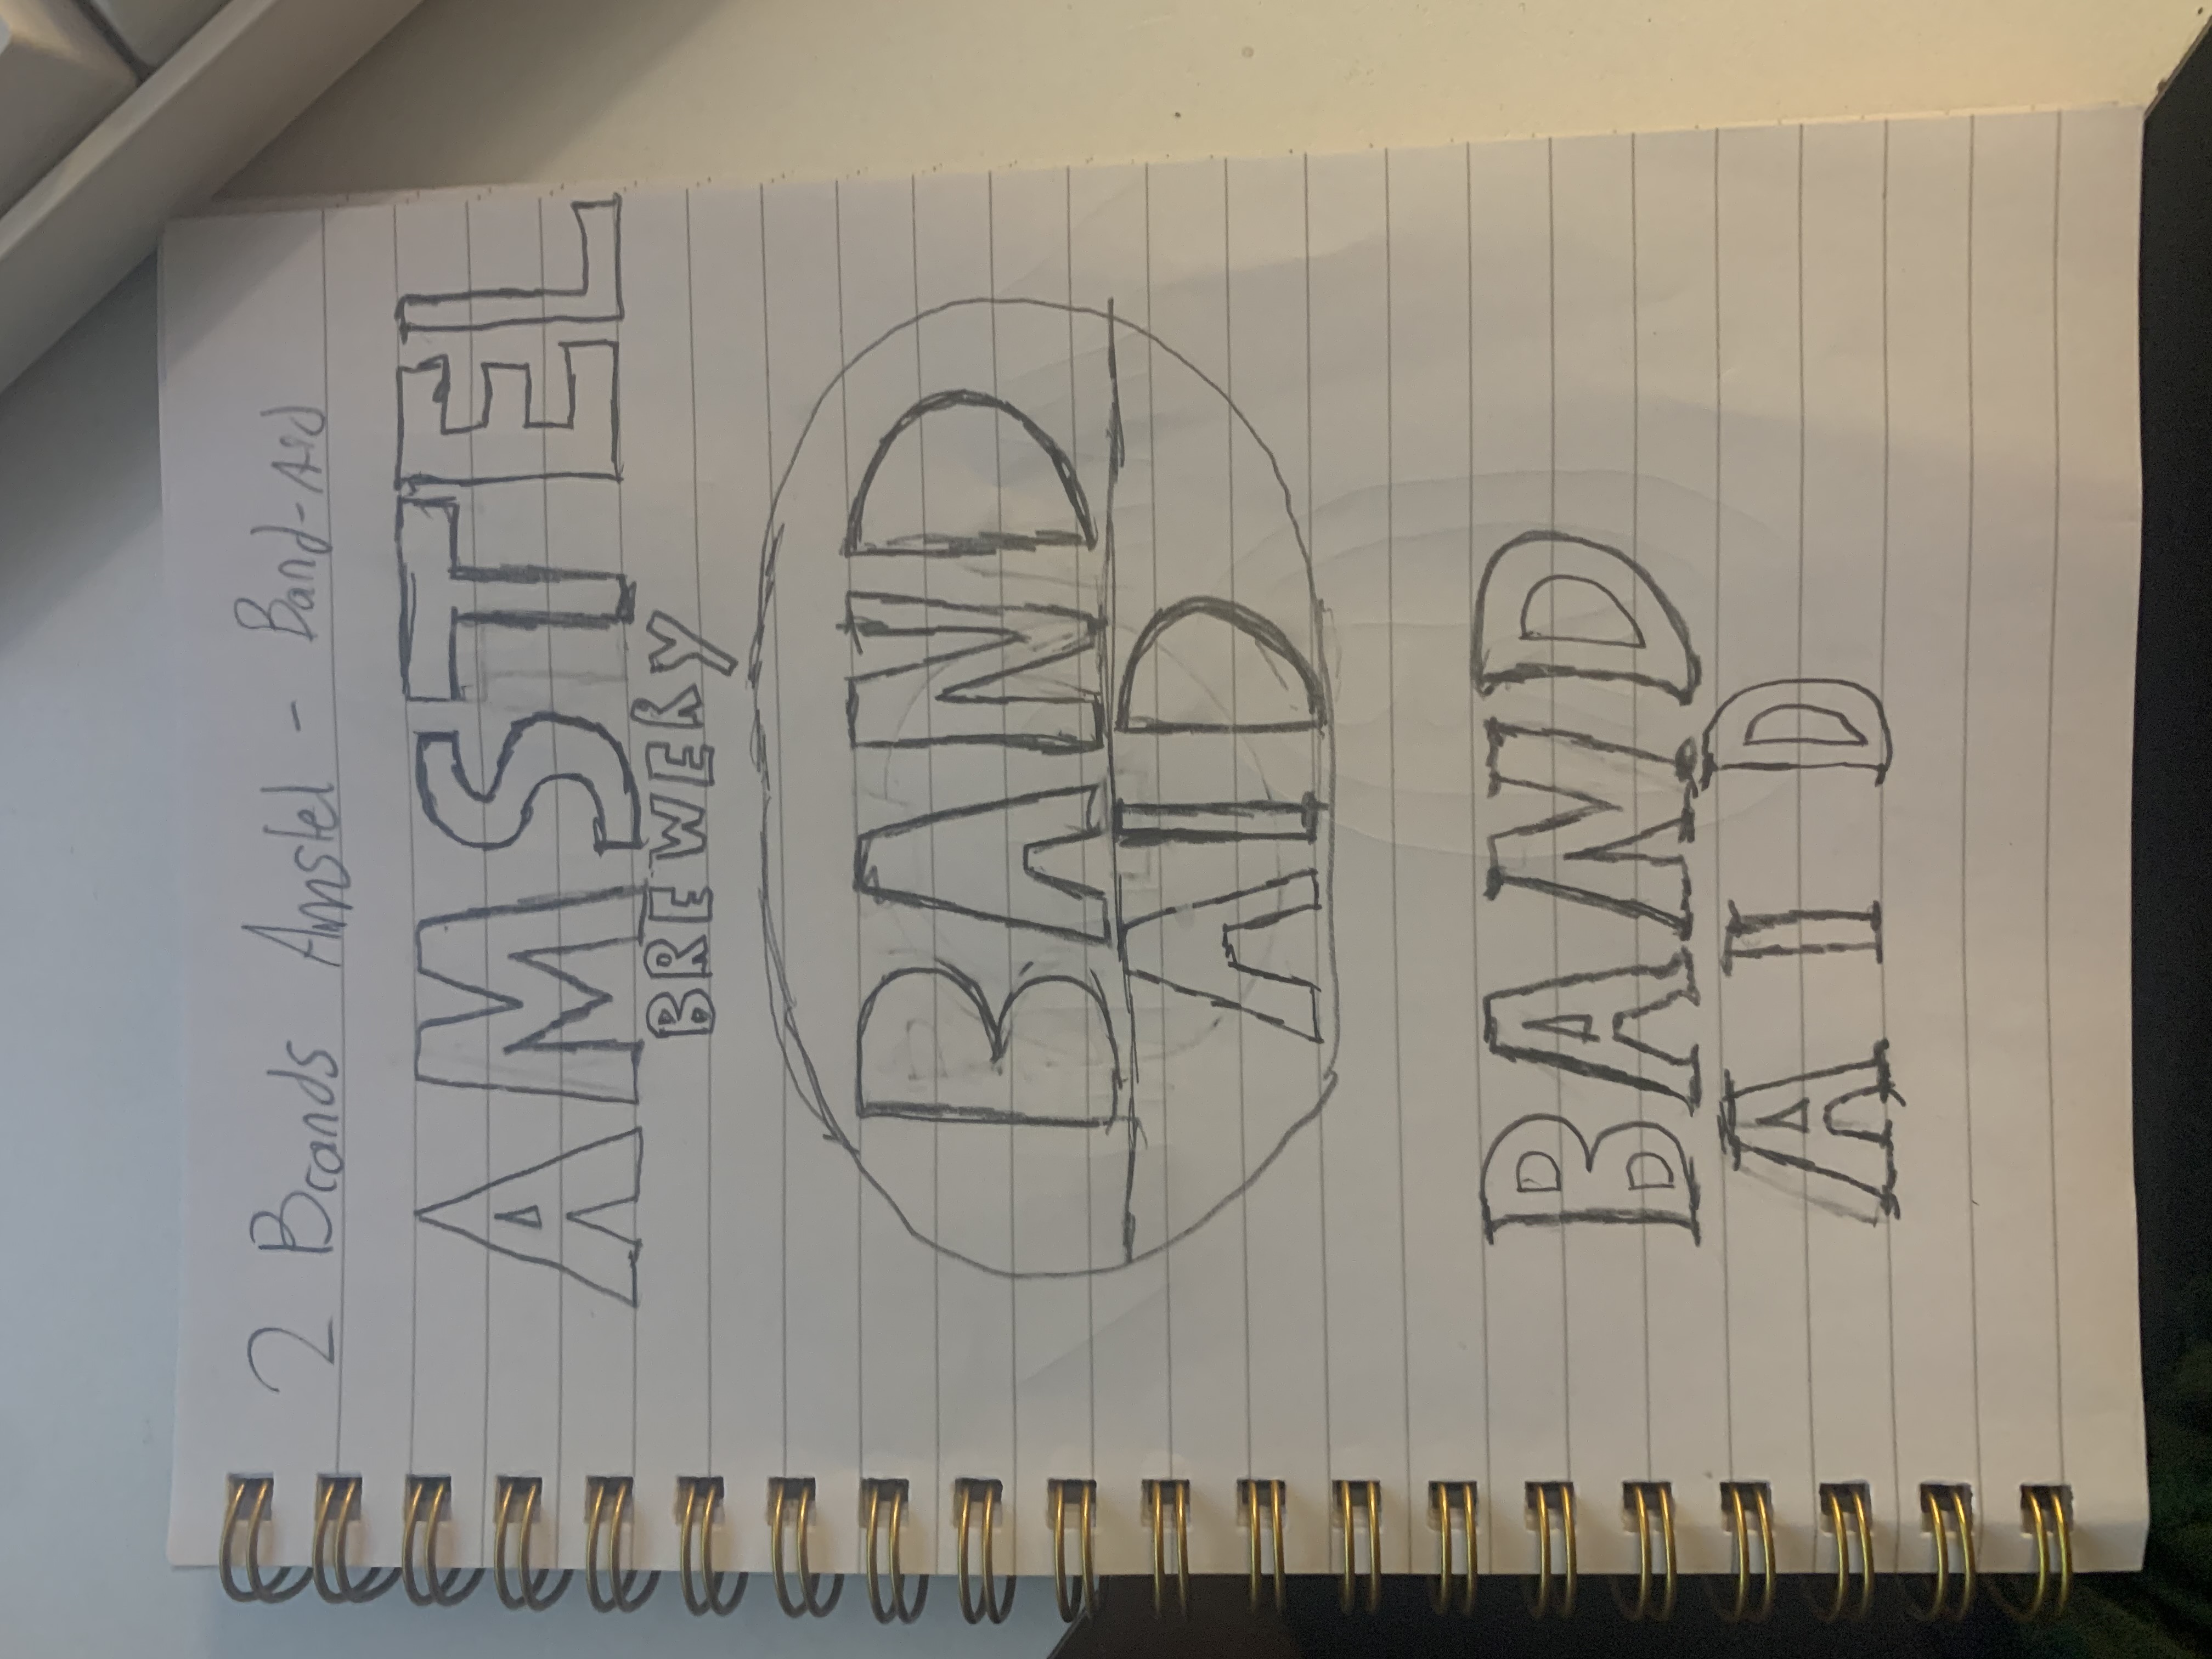 2 Brands Amstel - Band-Aid
AMSTEL
BREWERY
BAND
AID
BAND
AID